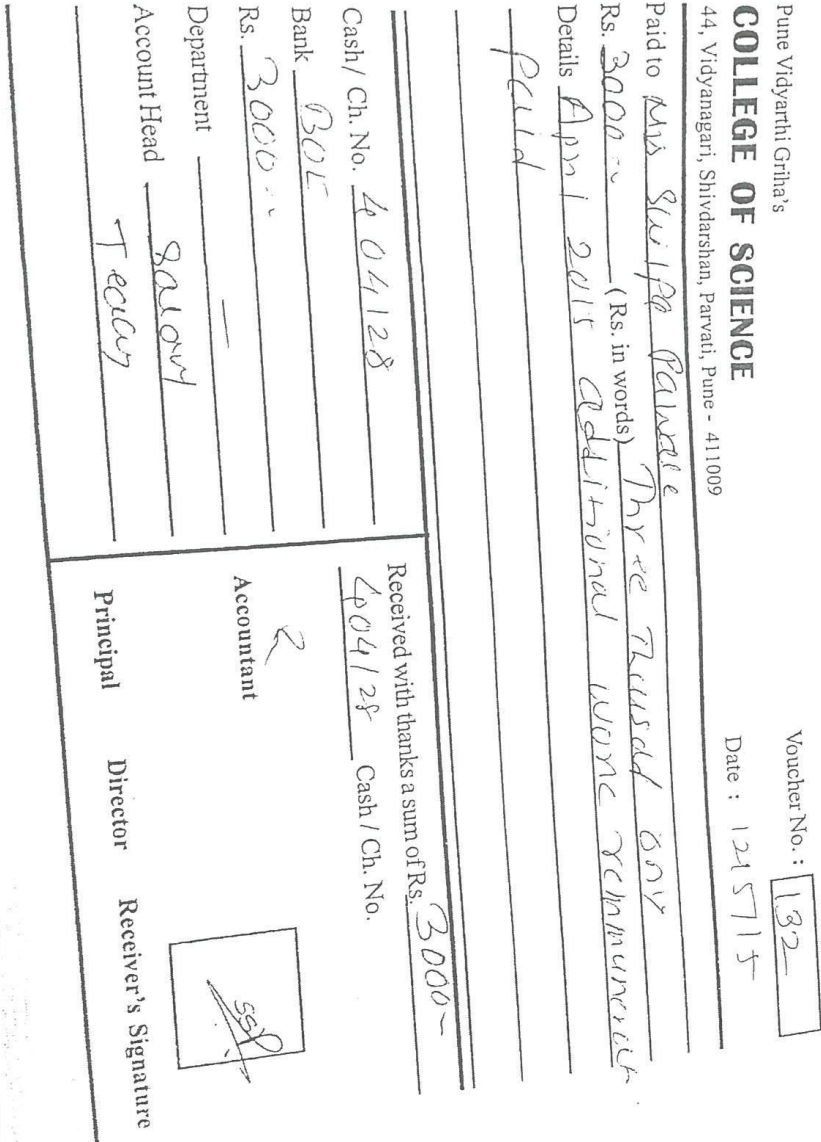 Pune Vidyarthi Griha's
COLLEGE OF SCIENCE
44, Vidyanagari, Shivdarshan, Parvati, Pune - 411009
Voucher No. : 132
Date : 12/5/15
Paid to Mrs Pawale
Rs. 3000 (Rs. in words) Three only
Details April 2015 additional work
Paid
Cash / Ch. No. 404128
Bank
Rs. 3000
Department —
Account Head Salary
Received with thanks a sum of Rs. 3000
404128 Cash / Ch. No.
Accountant
SSP
Principal Director Receiver's Signature